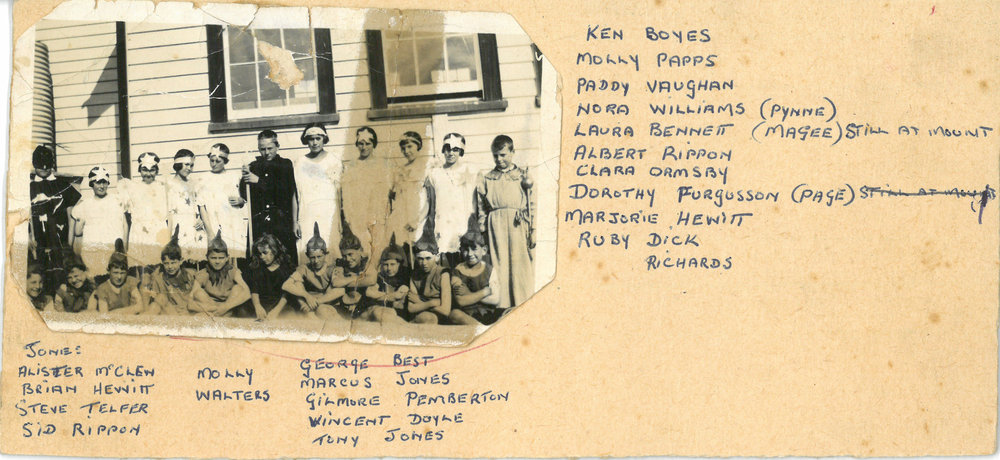 KEN BOYES
MOLLY PAPPS
PADDY VAUGHAN
NORA WILLIAMS (PYNNE)
LAURA BENNETT (MAGEE) STILL AT MOUNT
ALBERT RIPPON
CLARA ORMSBY
DOROTHY FURGUSSON (PAGE) STILL AT
MARJORIE HEWITT
RUBY DICK
RICHARDS
JONES
ALISTER McCLEN
BRIAN HEWITT
STEVE TELFER
SID RIPPON
MOLLY
WALTERS
GEORGE BEST
MARCUS JONES
GILMORE PEMBERTON
VINCENT DOYLE
TONY JONES